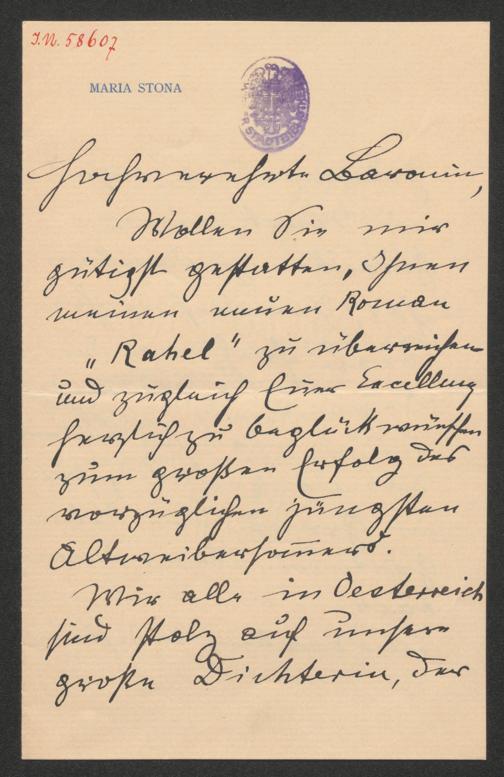 J.N. 58607
MARIA STONA
Hochverehrte Baronin,
Wollen Sie mir
gütigst gestatten, Ihnen
meinen neuen Roman
„Rahel" zu überreichen
und zugleich Euer Excellenz
herzlich zu beglückwünschen
zum großen Erfolg des
vorzüglichen jüngsten
Altweibersom̅ers.
Wir alle in Oesterreich
sind stolz auf unsere
große Dichterin, der